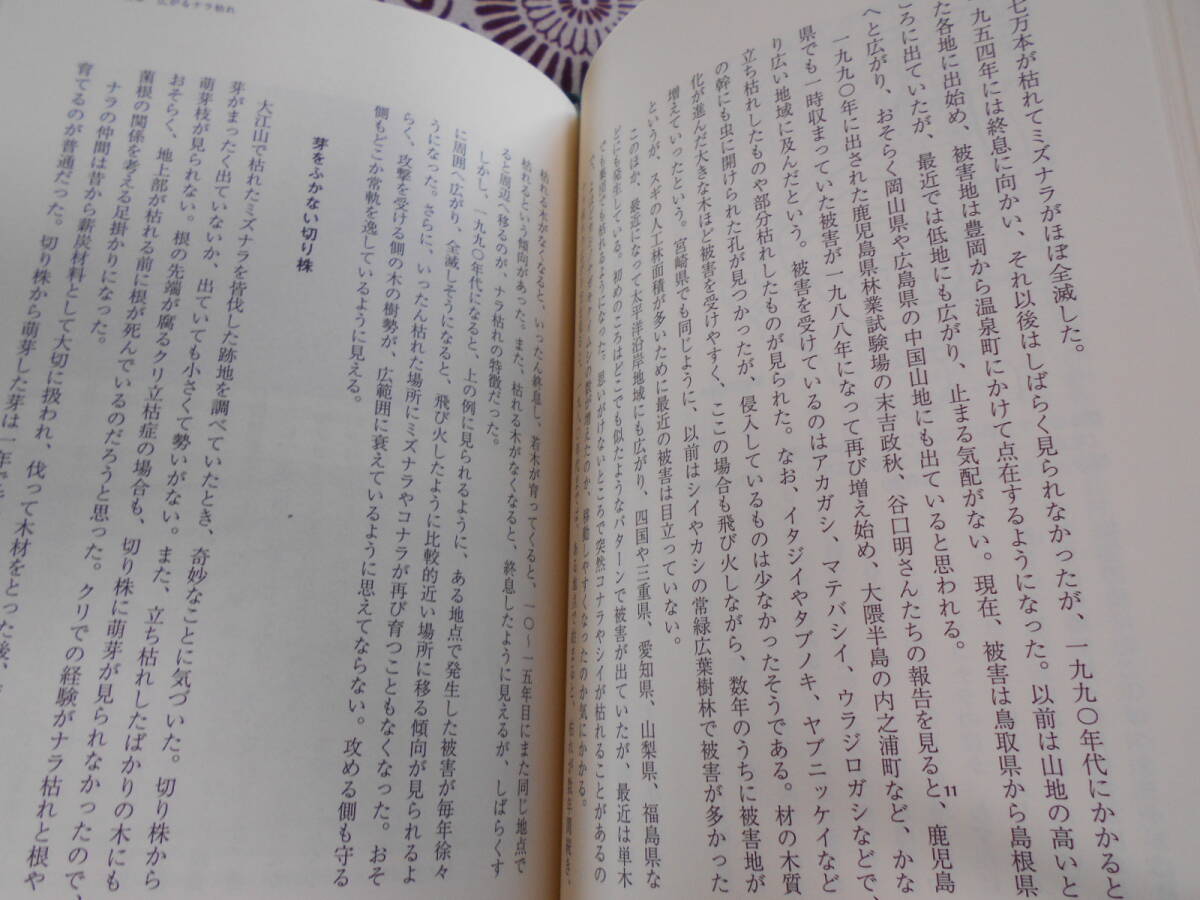 七万本が枯れてミズナラがほぼ全滅した。
九五四年には終息に向かい、それ以後はしばらく見られなかったが、一九九〇年代にかかると
た各地に出始め、被害地は豊岡から温泉町にかけて点在するようになった。以前は山地の高いと
ころに出ていたが、最近では低地にも広がり、止まる気配がない。現在、被害は鳥取県から島根県
へと広がり、おそらく岡山県や広島県の中国山地にも出ていると思われる。
一九九〇年に出された鹿児島県林業試験場の末吉政秋、谷口明さんたちの報告を見ると、鹿児島
11
県でも一時収まっていた被害が一九八八年になって再び増え始め、大隈半島の内之浦町など、かな
り広い地域に及んだという。被害を受けているのはアカガシ、マテバシイ、ウラジロガシなどで、
立ち枯れしたものや部分枯れしたものが見られた。なお、イタジイやタブノキ、ヤブニッケイなど
の幹にも虫に開けられた孔が見つかったが、侵入しているものは少なかったそうである。材の木質
化が進んだ大きな木ほど被害を受けやすく、ここの場合も飛び火しながら、数年のうちに被害地が
増えていったという。宮崎県でも同じように、以前はシイやカシの常緑広葉樹林で被害が多かった
というが、スギの人工林面積が多いために最近の被害は目立っていない。
このほか、最近になって太平洋沿岸地域にも広がり、四国や三重県、愛知県、山梨県、福島県な
どにも発生している。初めのころはどこでも似たようなパターンで被害が出ていたが、最近は単木
でも集団でも枯れるようになった。思いがけないところで突然コナラやシイが枯れることがあるの
ムシの数が増えたのか、移動しやすくなったのか気にかかる。
広がるナラ枯れ
枯れる木がなくなると、いったん終息し、若木が育ってくると、一〇〜一五年目にまた同じ地点で
枯れるという傾向があった。また、枯れる木がなくなると、終息したように見えるが、しばらくす
ると周辺へ移るのが、ナラ枯れの特徴だった。
しかし、一九九〇年代になると、上の例に見られるように、ある地点で発生した被害が毎年徐々
に周囲へ広がり、全滅しそうになると、飛び火したように比較的近い場所に移る傾向が見られるよ
うになった。さらに、いったん枯れた場所にミズナラやコナラが再び育つこともなくなった。おそ
らく、攻撃を受ける側の木の樹勢が、広範囲に衰えているように思えてならない。攻める側も守る
側もどこか常軌を逸しているように見える。
芽をふかない切り株
大江山で枯れたミズナラを皆伐した跡地を調べていたとき、奇妙なことに気づいた。切り株から
芽がまったく出ていないか、出ていても小さくて勢いがない。また、立ち枯れしたばかりの木にも
萌芽枝が見られない。根の先端が腐るクリ立枯症の場合も、切り株に萌芽が見られなかったので、
おそらく、地上部が枯れる前に根が死んでいるのだろうと思った。クリでの経験がナラ枯れと根や
菌根の関係を考える足掛かりになった。
ナラの仲間は昔から薪炭材料として大切に扱われ、伐って木材をとった後、
育てるのが普通だった。切り株から萌芽した芽は一年で